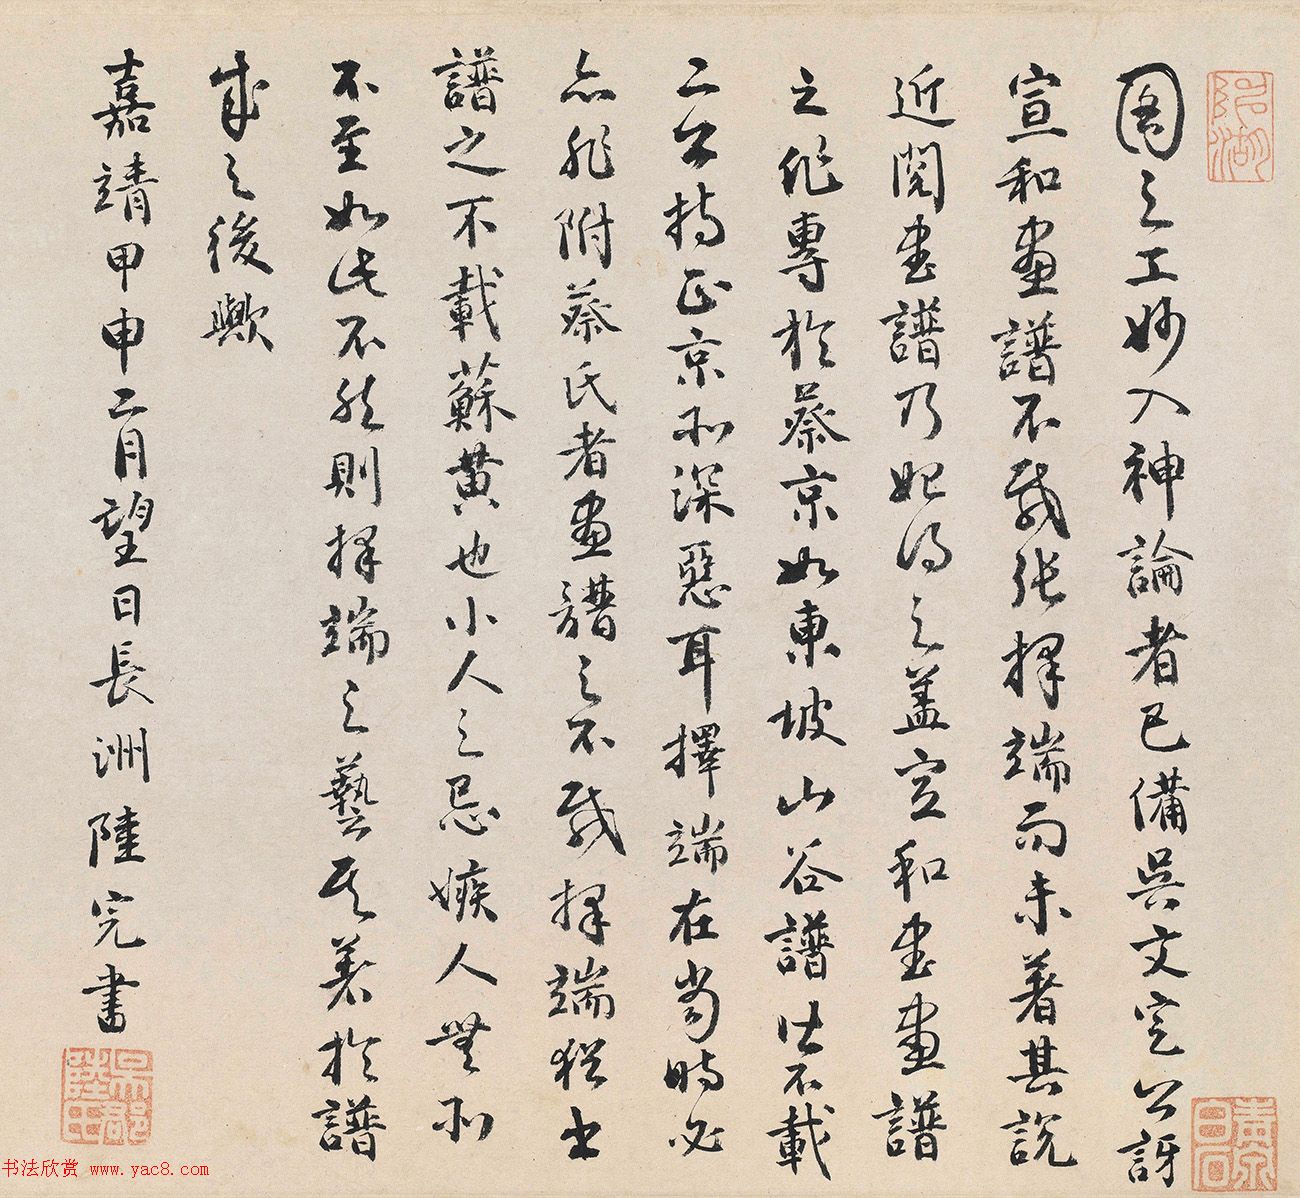 圖之工妙入神論者已備吳文定公訝
宣和畫譜不載張擇端而未著其説
近閱書譜乃始得之盖宣和書畫譜
之作專於蔡京如東坡山谷譜皆不載
二公持正京所深惡耳擇端在當時必
亦非附蔡氏者畫譜之不載擇端猶書
譜之不載蘇黄也小人之忌嫉人無所
不至如此不然則擇端之藝其著於譜
成之後歟
嘉靖甲申二月望日長洲陸完書
吳郡
陸氏
书法欣赏 www.yac8.com